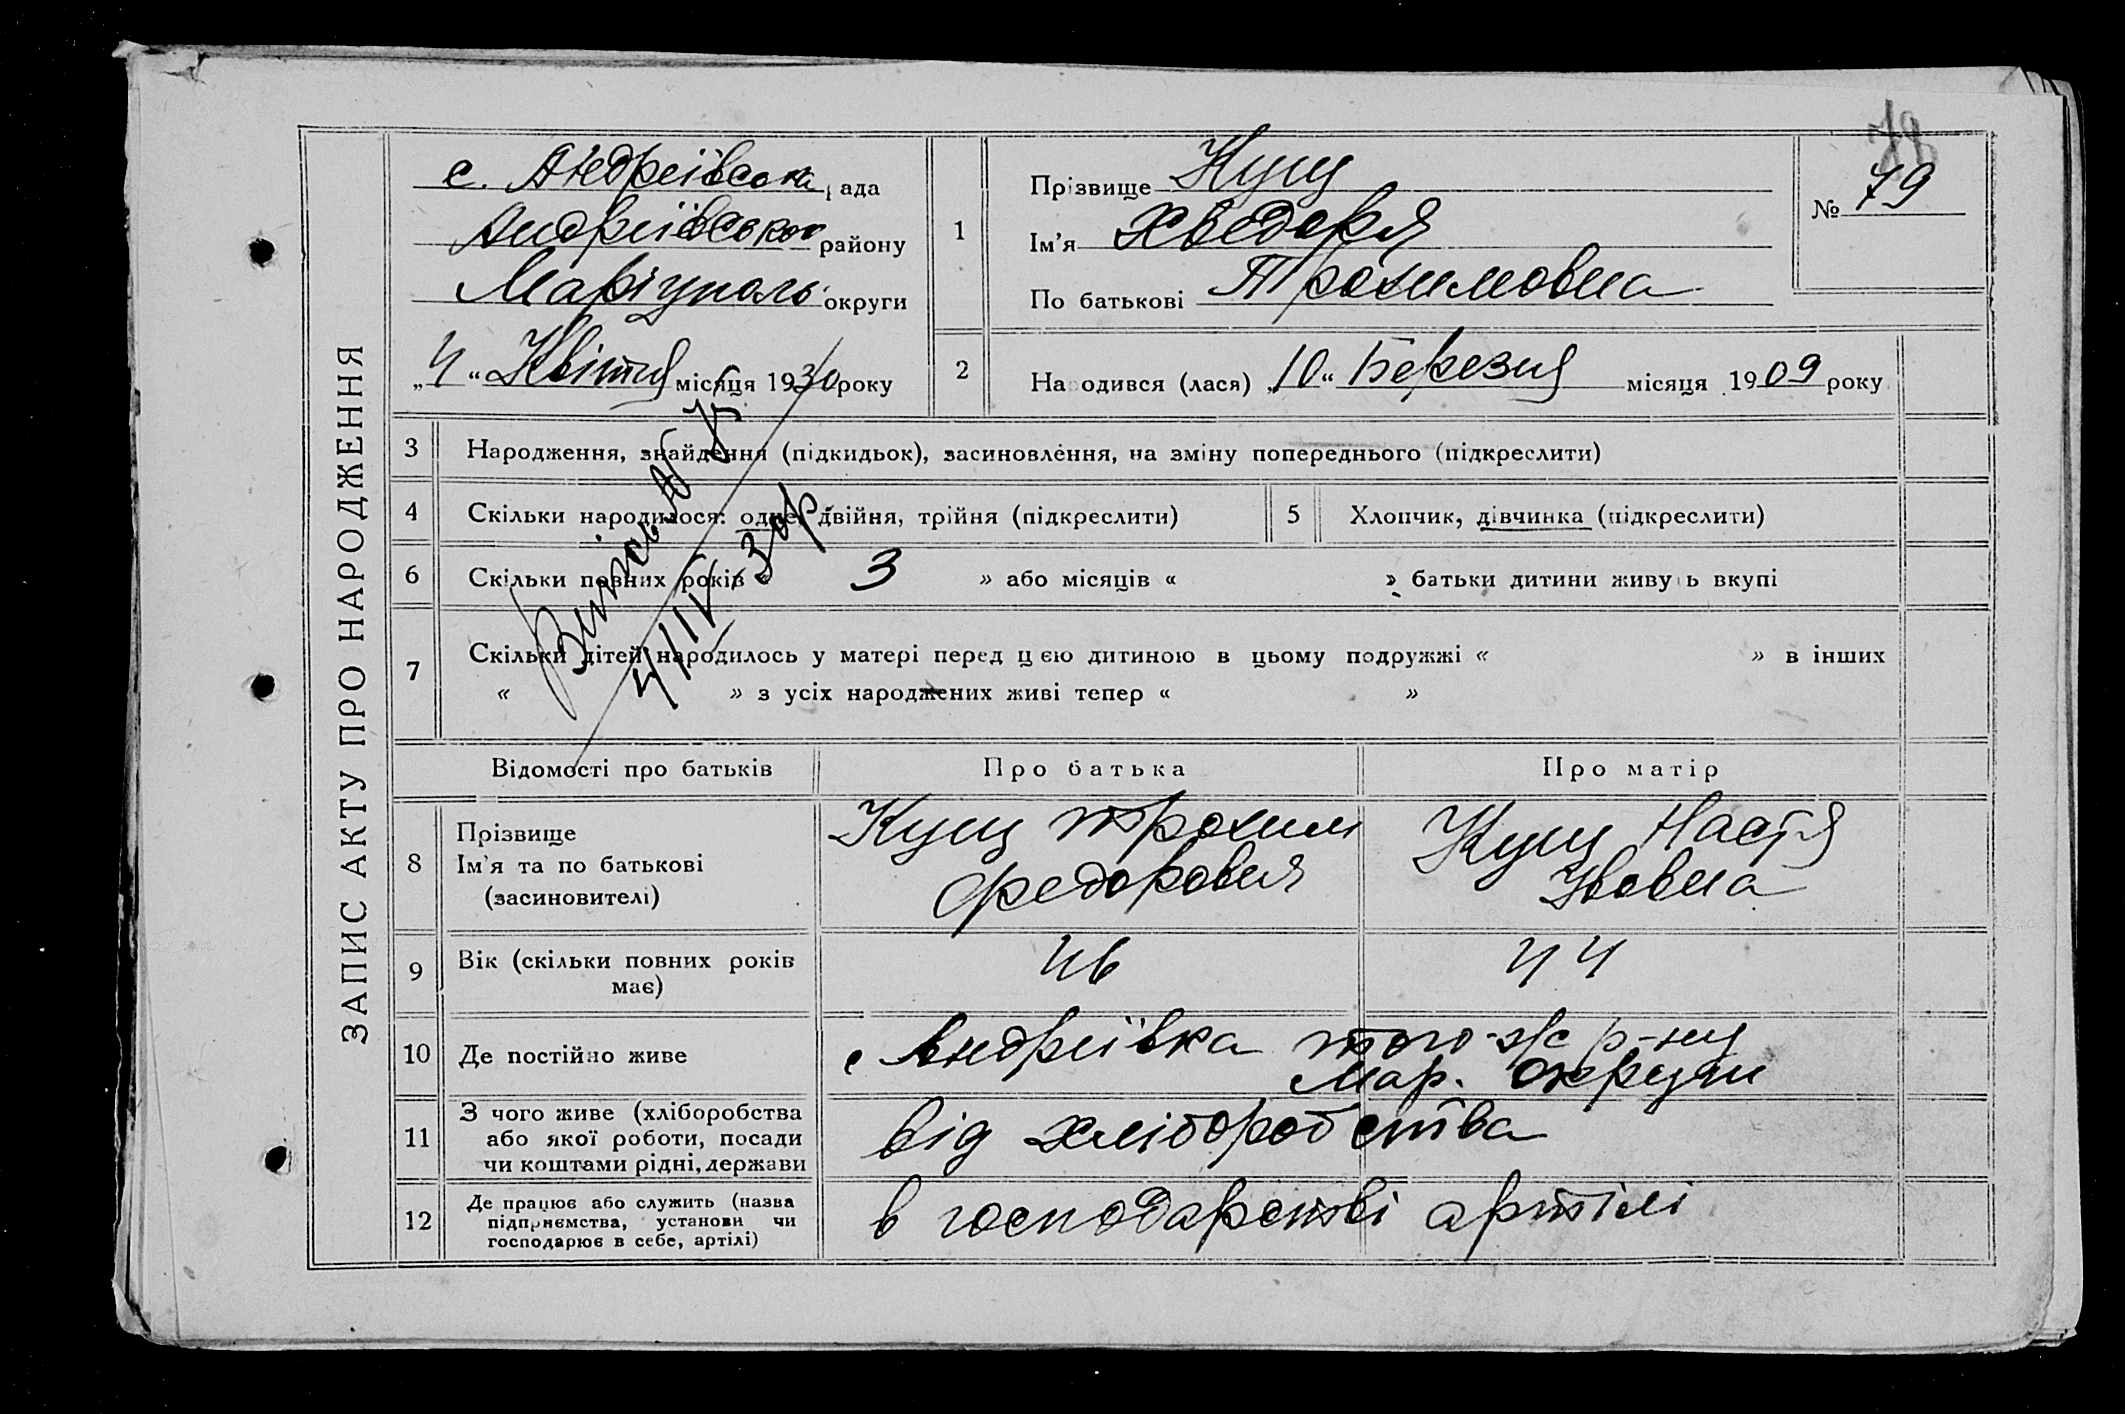 ЗАПИС АКТУ ПРО НАРОДЖЕННЯ
с. Андреівська рада
Андріївськог району
Маріуполь округи
„4“ Квітня місяця 1930 року
1
Прізвище Кущ
Ім’я Хведоря
По батькові Трохимовна
№ 79
2
Народився (лася) „10“ Березня місяця 1909 року
3 Народження, знайдення (підкидьок), засиновлення, на зміну попереднього (підкреслити)
4 Скільки народилося: одне, двійня, трійня (підкреслити)
5 Хлопчик, дівчинка (підкреслити)
6 Скільки повних років « 3 » або місяців « » батьки дитини живуть вкупі
7 Скільки дітей народилось у матері перед цією дитиною в цьому подружжі « » в інших
« » з усіх народжених живі тепер « »
4/IV 30р
Відомості про батьків Про батька Про матір
8 Прізвище
Ім’я та по батькові
(засиновителі)
Кущ Трохим
Федоровия
Кущ Настя
Ивовна
9 Вік (скільки повних років
має)
46 44
10 Де постійно живе
с Андріївка того-ж р-ну
Мар. Округи
11 З чого живе (хліборобства
або якої роботи, посади
чи коштами рідні, держави
від хліборобства
12 Де працює або служить (назва
підприємства, установи чи
господарює в себе, артілі)
в господарстві артілі